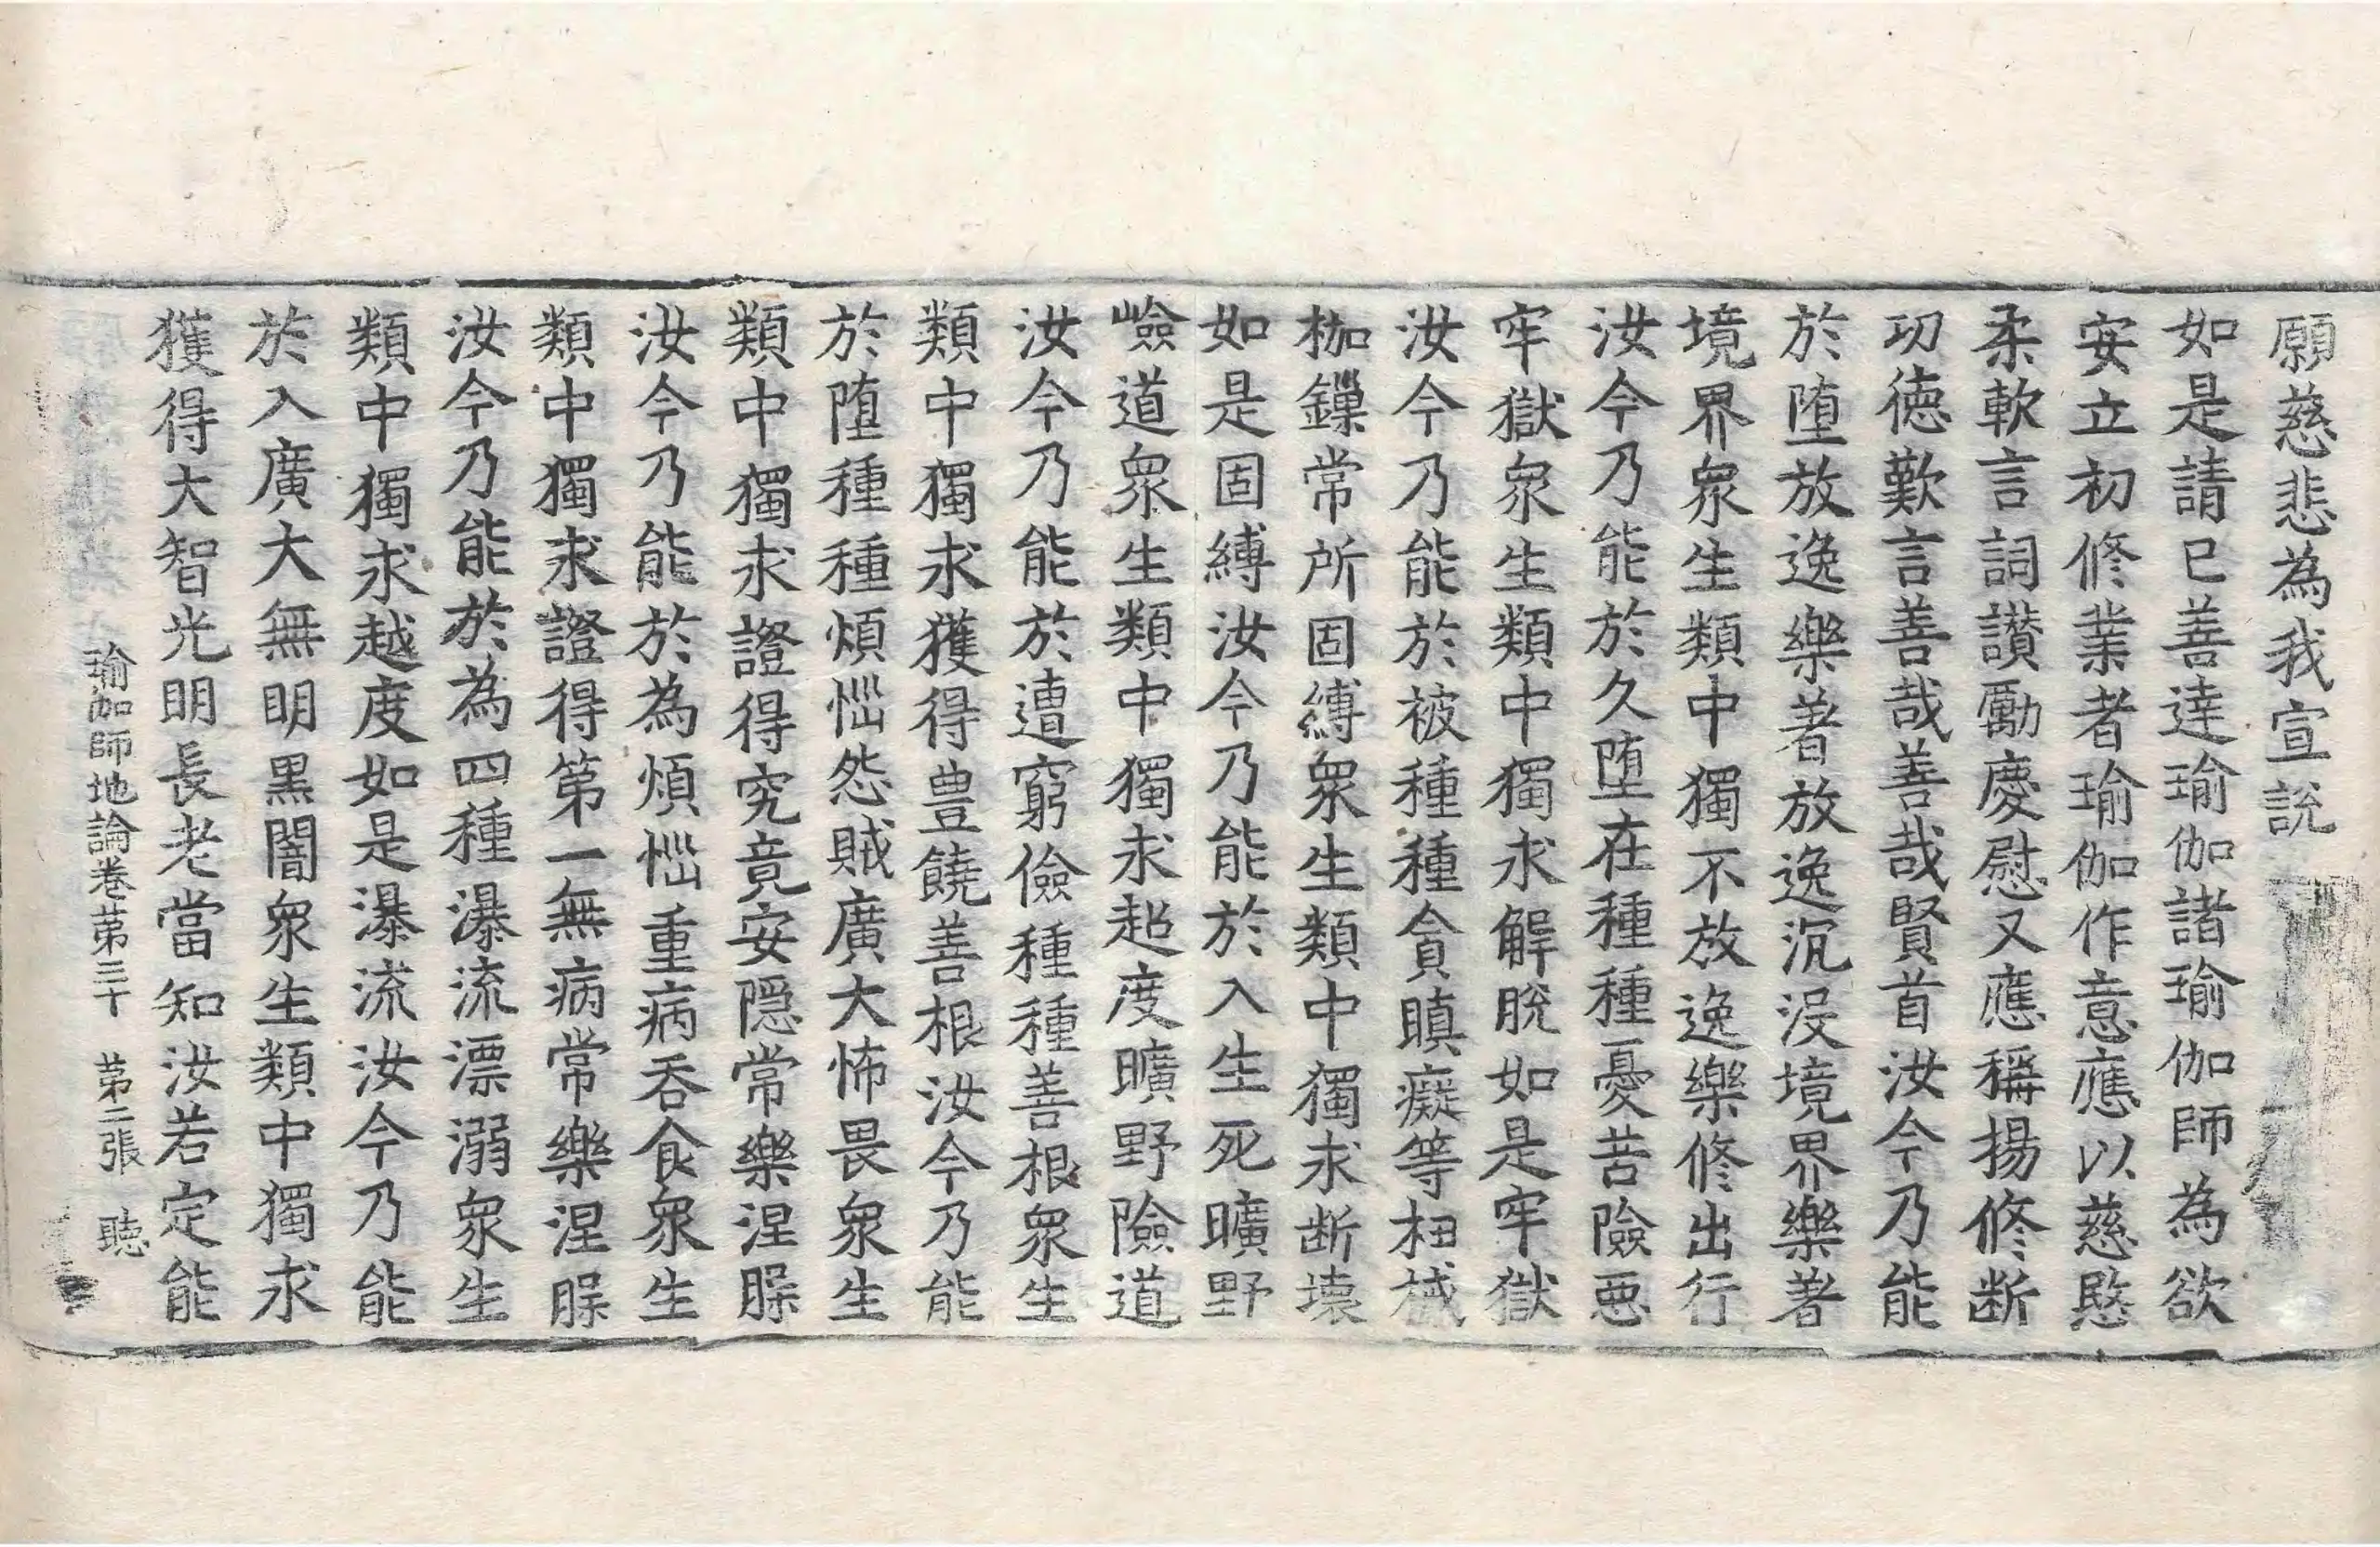 願慈悲為我宣說
如是請已善達瑜伽諸瑜伽師為欲
安立初修業者瑜伽作意應以慈愍
柔軟言詞讃勵慶慰又應稱揚修断
功德歎言善哉善哉賢首汝今乃能
於墮放逸樂著放逸沉沒境界樂著
境界衆生類中獨不放逸樂修出行
汝今乃能於久墮在種種憂苦險惡
牢獄衆生類中獨求解脫如是牢獄
汝今乃能於被種種貪瞋癡等杻械
枷鏁常所固縛衆生類中獨求断壞
如是固縛汝今乃能於入生死曠野
嶮道衆生類中獨求超度曠野險道
汝今乃能於遭窮儉種種善根衆生
類中獨求獲得豊饒善根汝今乃能
於墮種種煩惱怨賊廣大怖畏衆生
類中獨求證得究竟安隱常樂涅槃
汝今乃能於為煩惱重病吞食衆生
類中獨求證得第一無病常樂涅槃
汝今乃能於為四種瀑流漂溺衆生
類中獨求越度如是瀑流汝今乃能
於入廣大無明黒闇衆生類中獨求
獲得大智光明長老當知汝若定能
瑜伽師地論卷苐三十 苐二張 聽